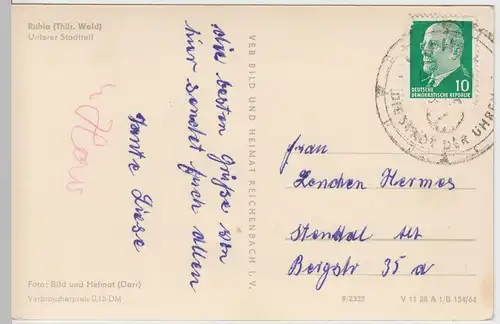 Ruhla (Thür. Wald)
Unterer Stadtteil
die besten Grüße von
hier sendet Euch allen
Tante Liese
VEB BILD UND HEIMAT REICHENBACH I. V.
DEUTSCHE
DEMOKRATISCHE REPUBLIK
10
DIE STADT DER UHREN
Frau
Lenchen Hermes
Stendal Alt
Bergstr 35 a
Foto: Bild und Heimat (Darr)
Verbraucherpreis 0,15 DM
9/2329
V 11 28 A 1/B 154/64